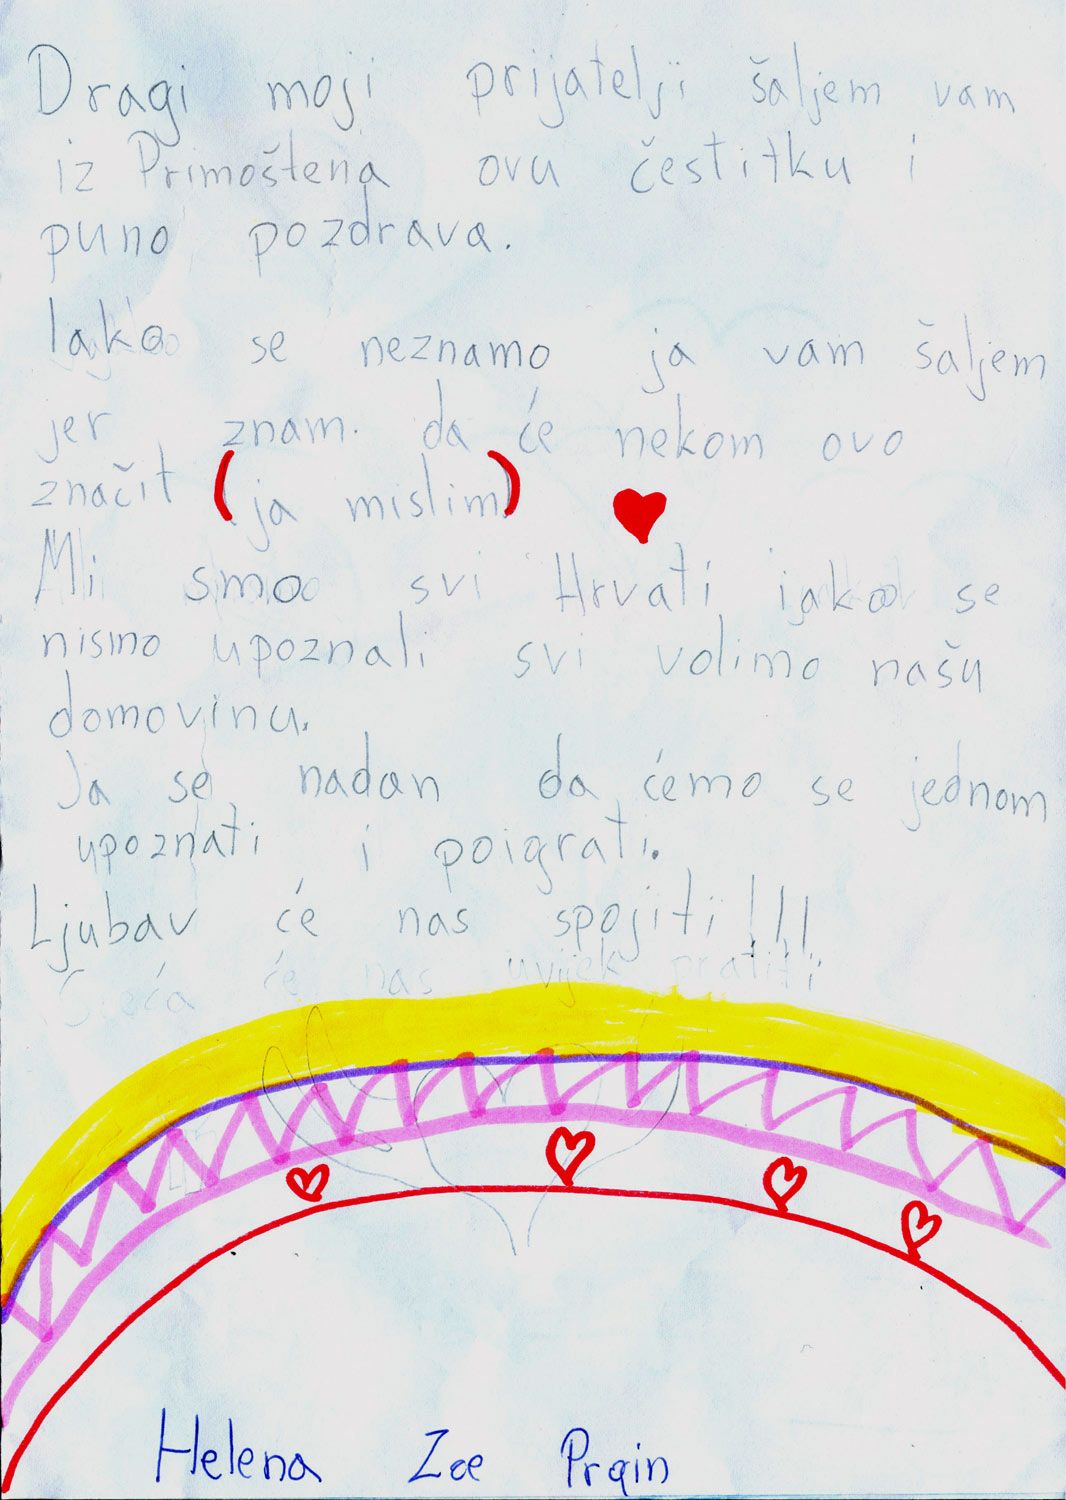 Dragi moji prijatelji šaljem vam
iz Primoštena ovu čestitku i
puno pozdrava.
Iako se neznamo ja vam šaljem
jer znam da će nekom ovo
značit (ja mislim)
Mi smo svi Hrvati iako se
nismo upoznali svi volimo našu
domovinu.
Ja se nadan da ćemo se jednom
upoznati i poigrati.
Ljubav će nas spojiti!!!
Sreća će nas uvijek pratiti
Helena Zoe Prgin